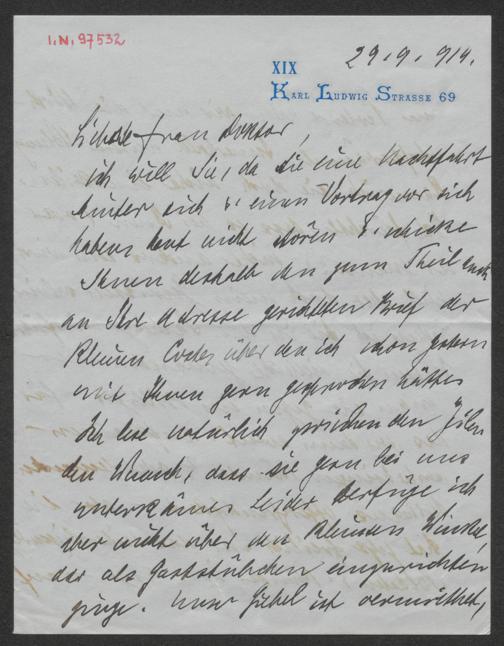 I.N. 97532
29.9.914.
XIX
KARL LUDWIG STRASSE 69
Liebste Frau Doktor,
ich will Sie, da Sie eine Nachtfahrt
hinter sich u. einen Vortrag vor sich
haben, heut nicht stören u. schicke
Ihnen deshalb den zum Theil auch
an Ihre Adresse gerichteten Brief der
kleinen über den ich schon gestern
mit Ihnen gern gesprochen hätte.
Ich lese natürlich zwischen den Zeilen
den Wunsch, dass sie gern bei uns
unterkäme. Leider verfüge ich
aber nicht über den kleinsten Winkel,
der als Gaststübchen einzurichten
ginge. Unser Giebel ist vermiethet,